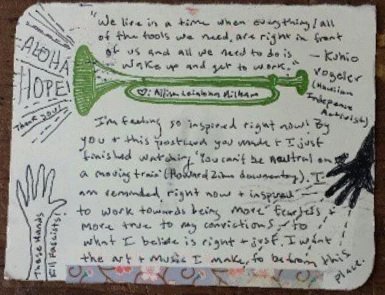 "We live in a time when everything/all
of the tools we need, are right in front
of us and all we need to do is
wake up and get to work."
— Kuhio
Vogeler
(Hawaiian
Indepence
Activist)
ALOHA
HOPE!
Thank you!
♡: Allison Leialoha Milham
I'm feeling so inspired right now! By
you + this postcard you made + I just
finished watching 'You can't be neutral on
a moving train' (Howard Zinn documentary). I
am reminded right now + inspired
to work towards being more fearless
more true to my convictions to
what I belide is right + just. I want
the art + music I make, to be from this
place.
These Hands
Kill Fascists!